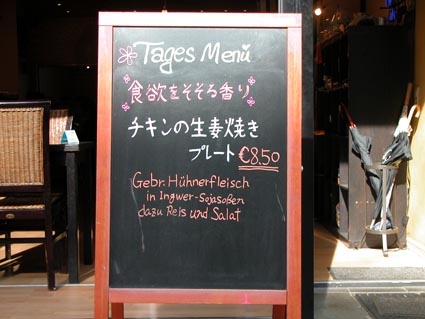 Tages Menü
食欲をそそる香り
チキンの生姜焼き
プレート €8.50
Gebr. Hühnerfleisch
in Ingwer-Sojasoßen
dazu Reis und Salat